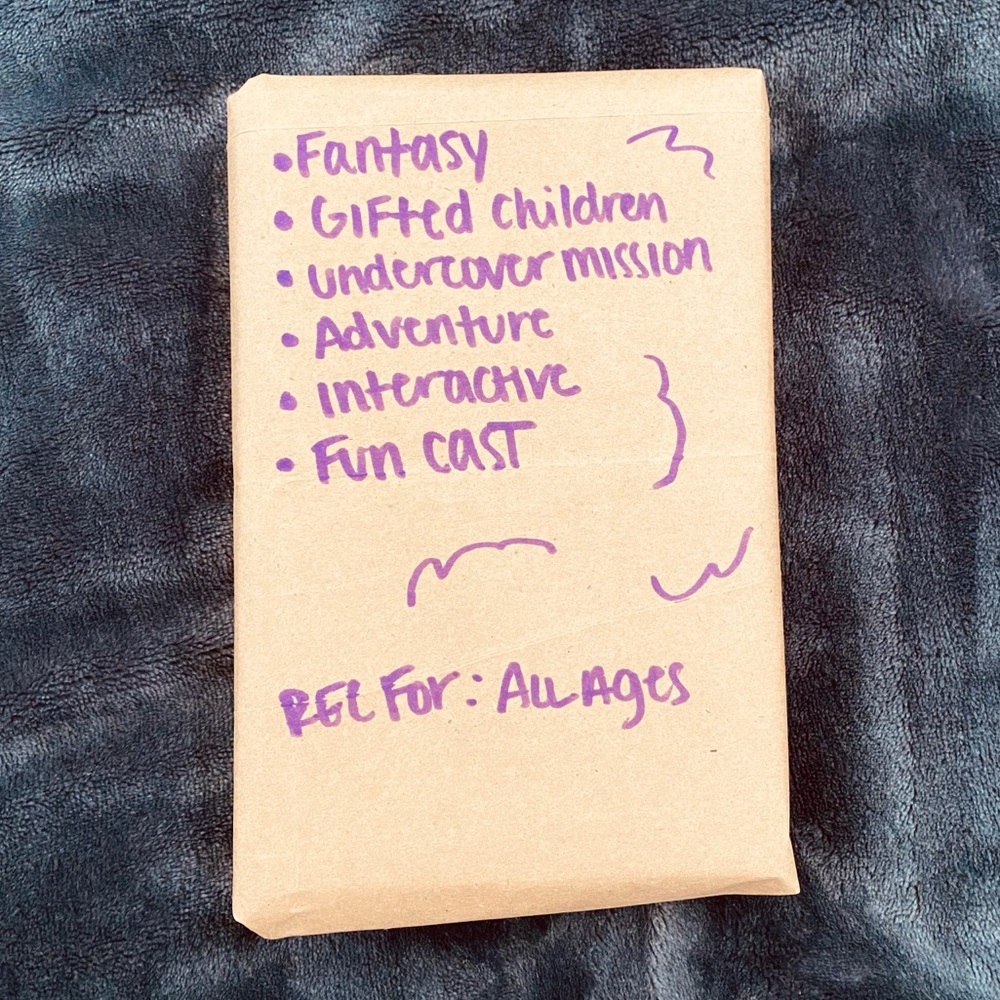 •Fantasy
• Gifted children
• undercover mission
• Adventure
• Interactive
• Fun cast
Rec For: All Ages